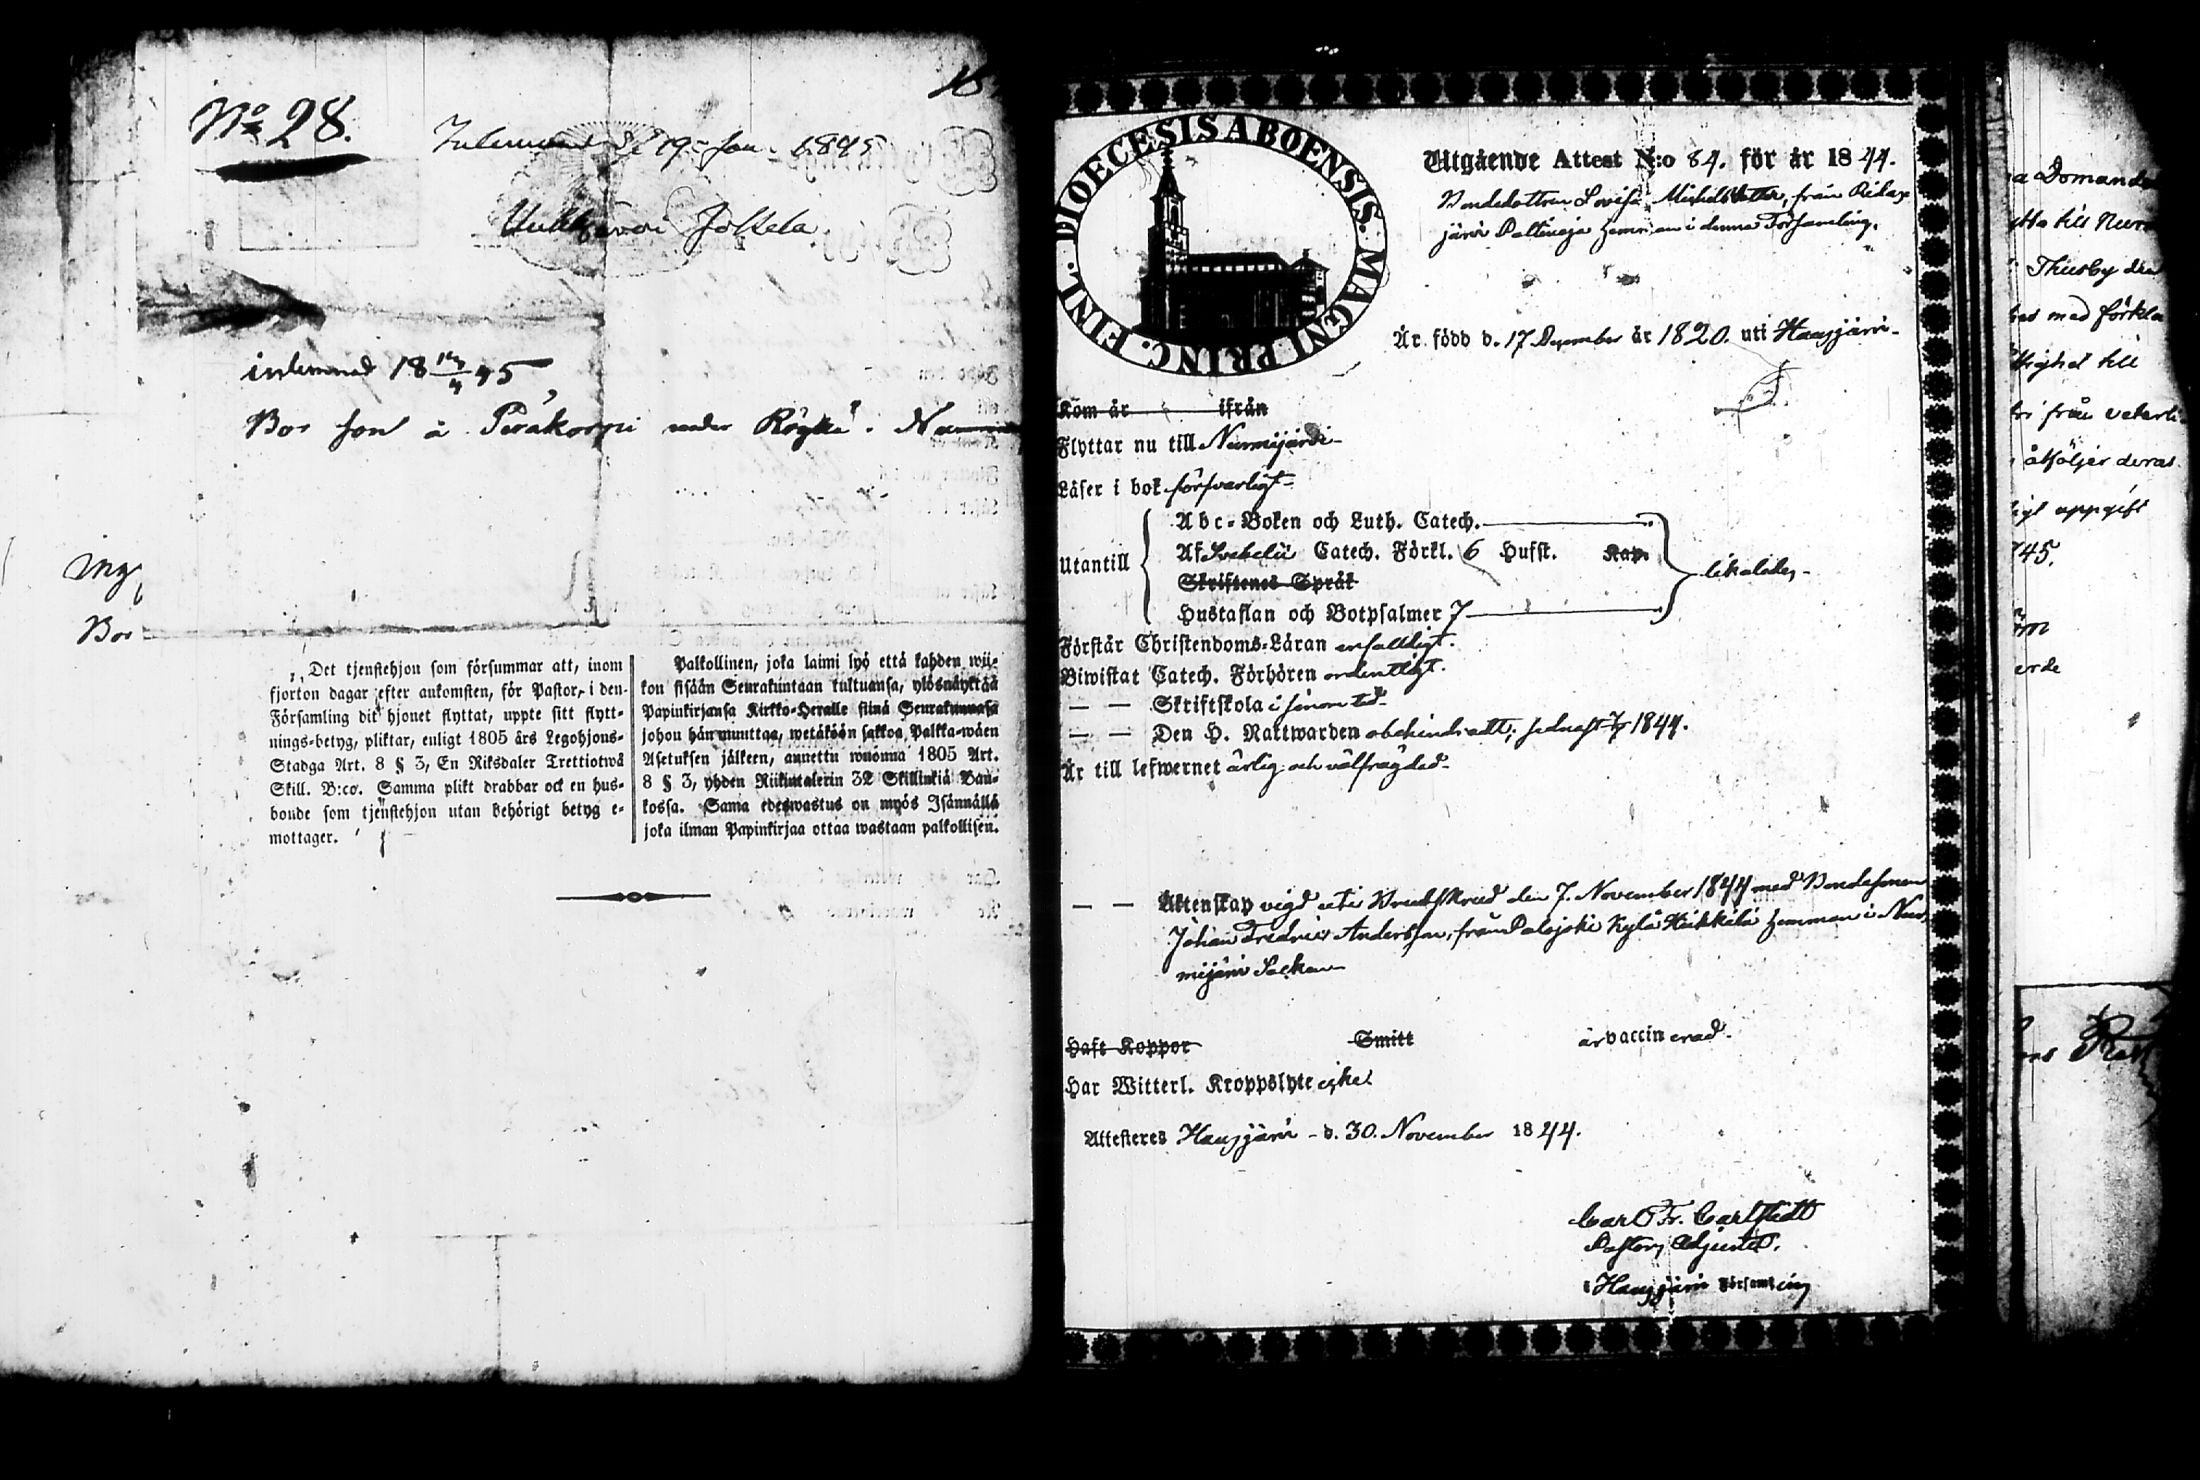 No 28.
Inlemnad d. 19 Jan. 1845
Uukkswori Jokela
inlemnad 18 19/4 45
Bor som å Peräkorpi under Röykä.
Bor
Det tjenstehjon som försummar att, inom
fjorton dagar efter ankomsten, för Pastor, i den
Församling dit hjonet flyttat, uppte sitt flytt-
nings-betyg, pliktar, enligt 1805 års Legohjons-
Stadga Art. 8 § 3, En Riksdaler Trettiotwå
Skill. B:co. Samma plikt drabbar ock en hus-
bonde som tjenstehjon utan behörigt betyg e-
mottager.
Palkollinen, joka laimi lyö että kahden wii-
kon sisään Seurakuntaan tultuansa, ylösnäyttää
Papinkirjansa Kirkko-Herralle siinä Seurakunnasa
johon hän muuttaa, wetäköön sakkoa Palkka-wäen
Asetuksen jälkeen, annettu wuonna 1805 Art.
8 § 3, yhden Riikintalerin 32 Skillinkiä Ban-
kossa. Sama edeswastus on myös Isännällä
joka ilman Papinkirjaa ottaa wastaan palkollisen.
DIOECESIS ABOENSIS. MAGNI PRINC. FINL.
Utgående Attest N:o 84. för år 1844.
Bondedottren Lovisa Michelsdotter, från Ridas-
järvi Paltinoja hemman i denna Församling.
Är född d. 17 December år 1820. uti Hausjärvi
Kom år ifrån
Flyttar nu till Nurmijärvi
Läser i bok försvarligt
Utantill
Abc-Boken och Luth. Catech.
Af Svebelii Catech. Förkl. 6 Hufst. Kap.
Skriftenes Språk
Hustaflan och Botpsalmer 7
likaledes
Förstår Christendoms-Läran enfalldigt.
Biwistat Catech. Förhören ordentligt.
— — Skriftskola i sinom tid
— — Den H. Nattwarden obehindradt, sednast 1844.
Är till lefwernet ärlig och välfrägdad
— — Äktenskap vigd uti Brudskrud den 7. November 1844 med Bondesonen
Johan Fredric Andersson, från Palojoki Kylä Heikkilä hemman i Nur-
mijärvi Socken
Haft Koppor Smitt är vaccinerad.
Har Witterl. Kroppslyte icke
Attesteres Hausjärvi d. 30. November 1844.
Carl Fr. Carlstedt
Pastors Adjunct.
i Hausjärvi Församling
a Domande
Thusby
med förkla
till
från
åtföljer deras
uppgift
45.